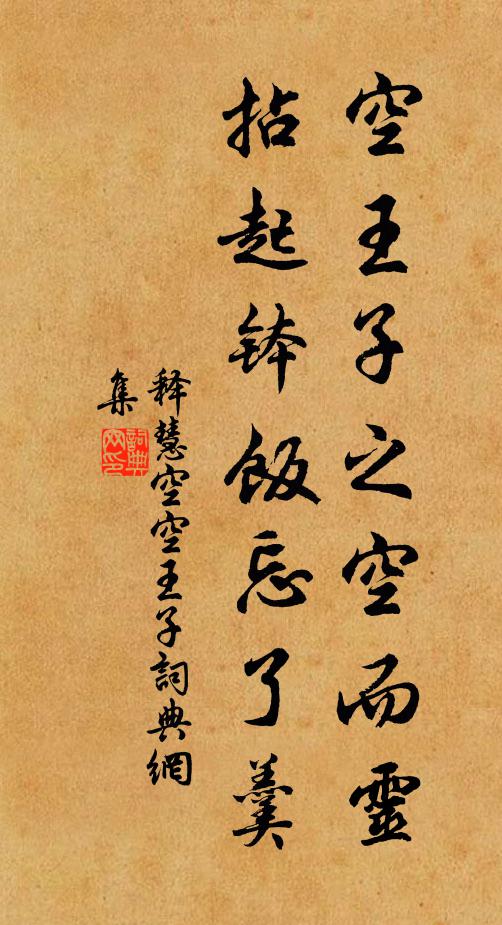 空王子之空而靈
拈起鉢飯忘了羹
釋慧空空王子詞典網
集
詞典
网印